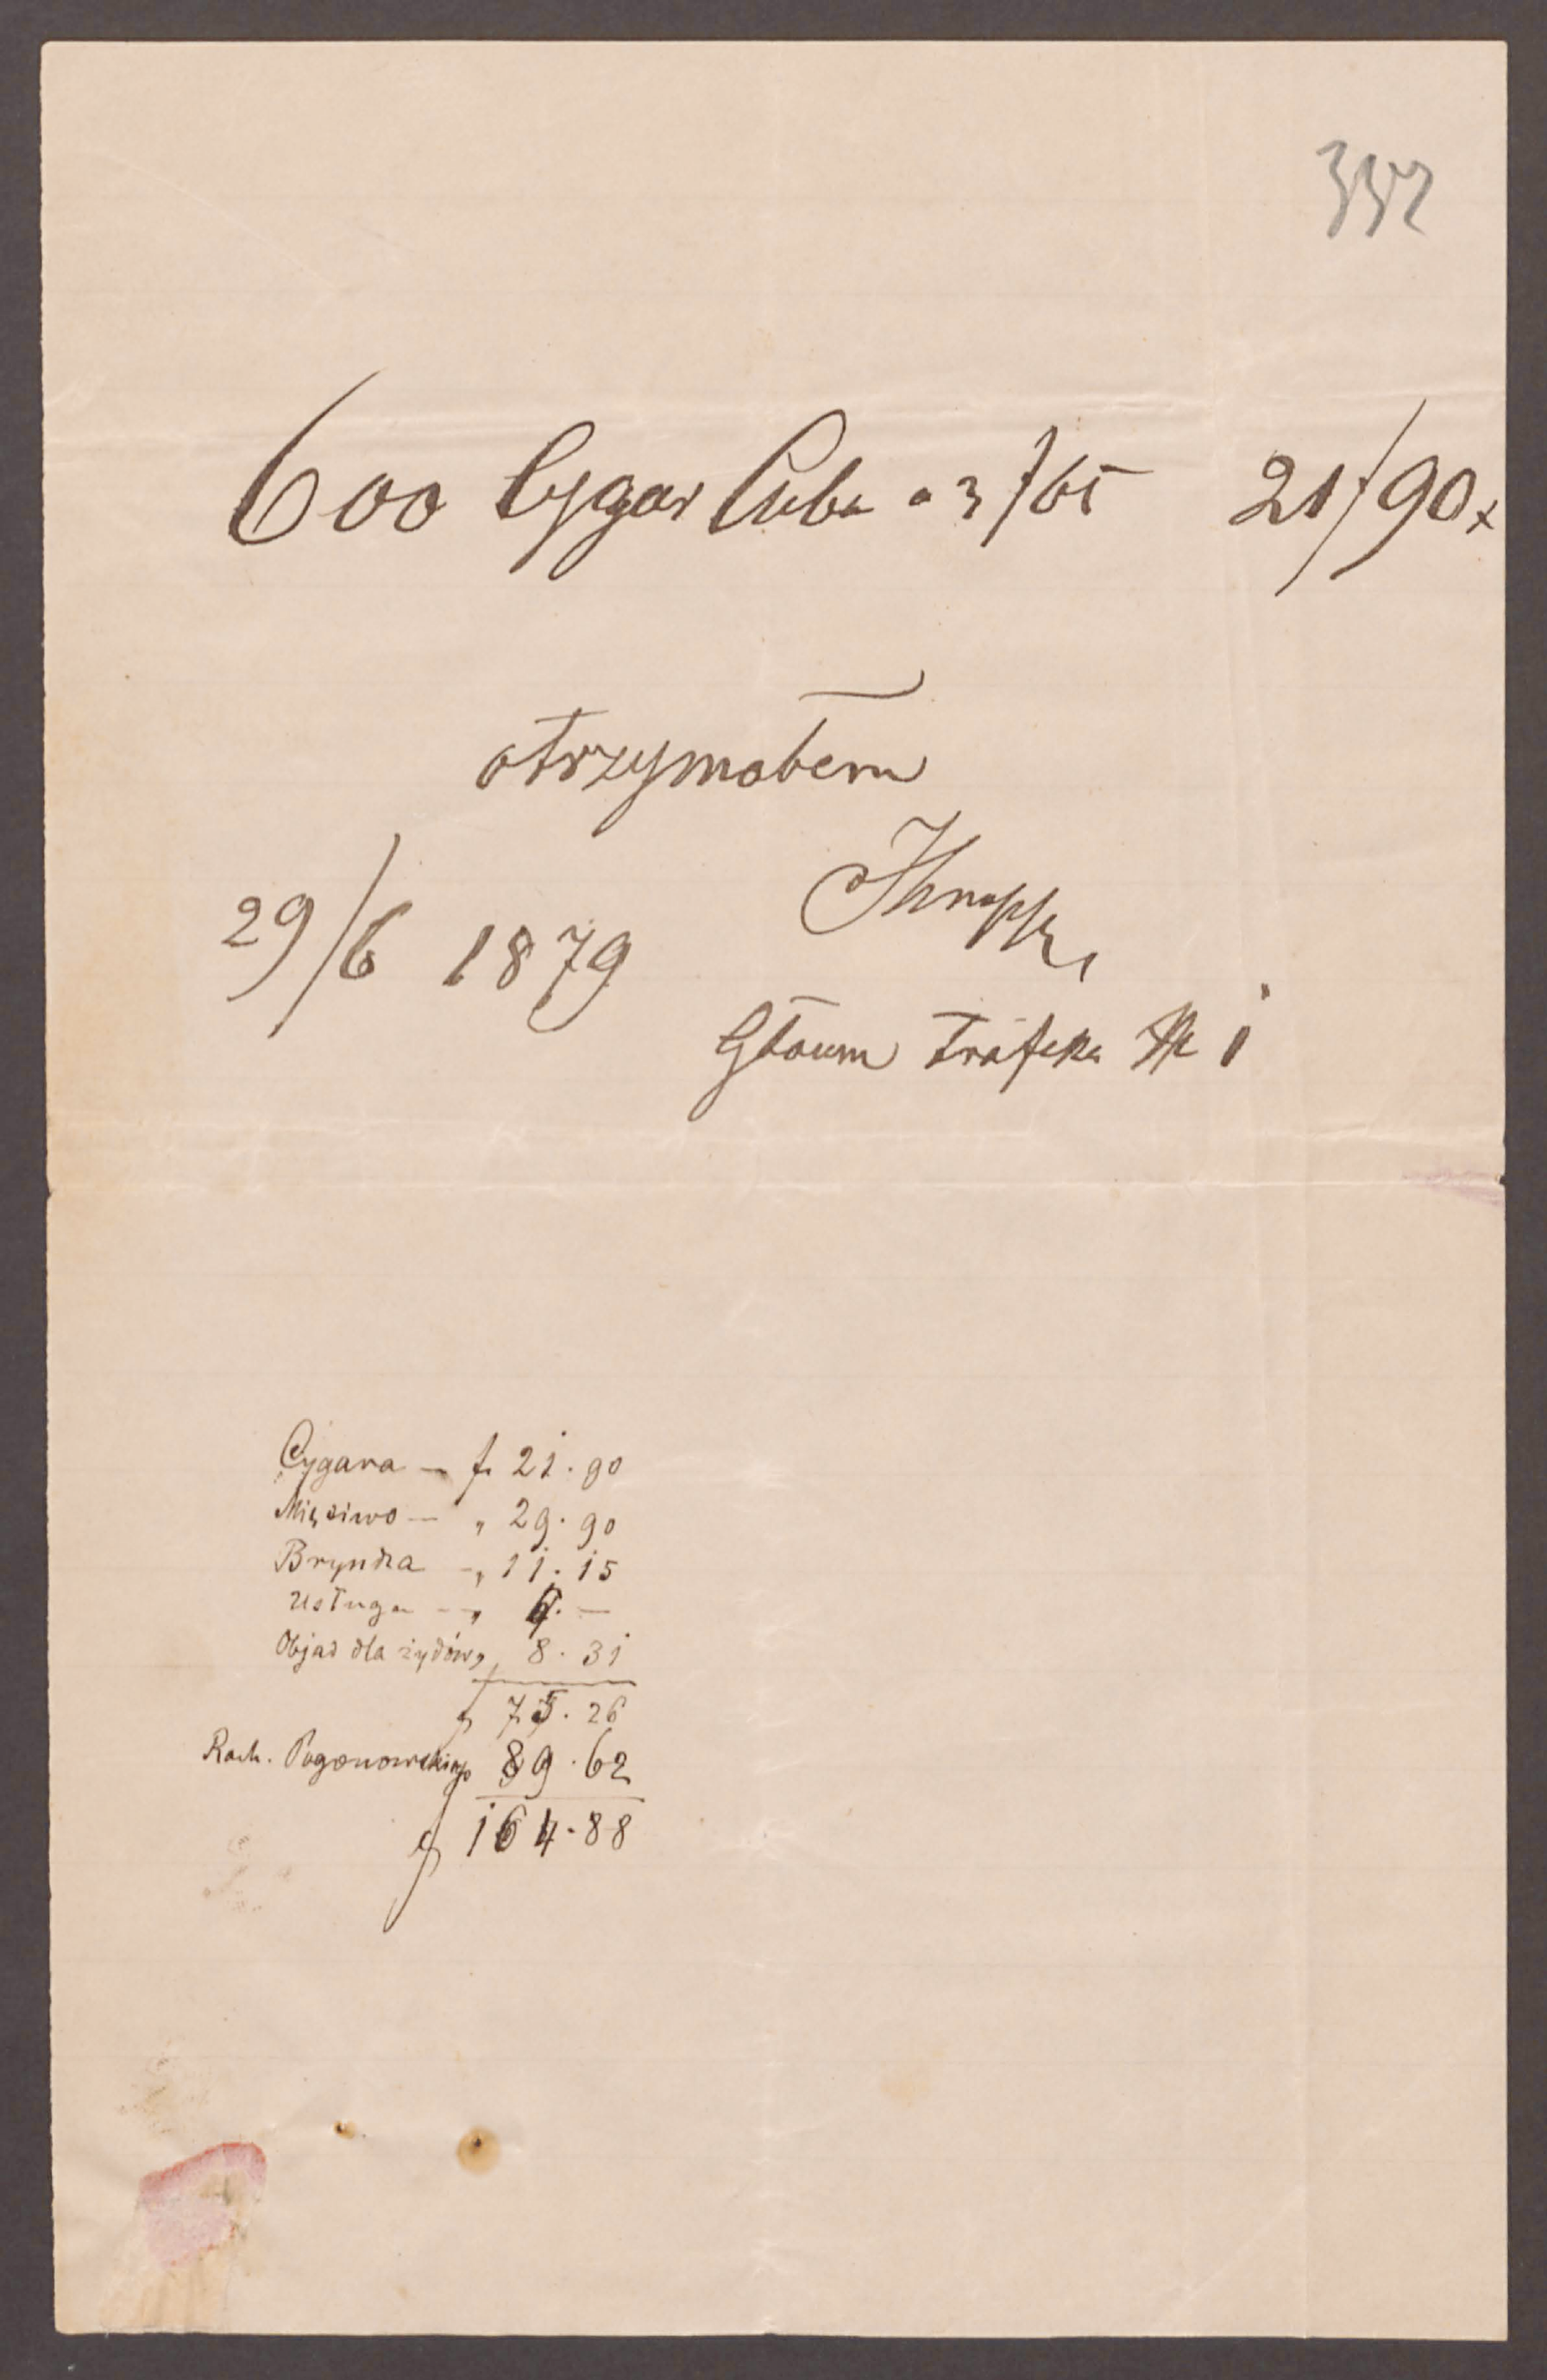 352
600 Cygar Cuba a 3 f 65 21 f 90 x
otrzymałem
29/6 1879
Główn Trafika № 1
Cygara — f. 21.90
Mięsiwo — „ 29.90
Bryndza — „ 11.15
Usługa — „ 4.—
Objad dla żydów „ 8.31
f 75.26
Rach. Pogonowskiego 89.62
f 164.88